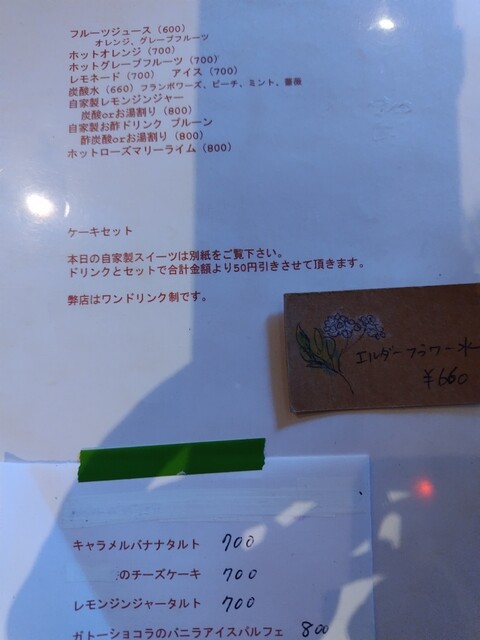 フルーツジュース（600）
オレンジ、グレープフルーツ
ホットオレンジ（700）
ホットグレープフルーツ（700）
レモネード（700） アイス（700）
炭酸水（660）フランボワーズ、ピーチ、ミント、薔薇
自家製レモンジンジャー
炭酸orお湯割り（800）
自家製お酢ドリンク プルーン
酢炭酸orお湯割り（800）
ホットローズマリーライム（800）
ケーキセット
本日の自家製スイーツは別紙をご覧下さい。
ドリンクとセットで合計金額より50円引きさせて頂きます。
弊店はワンドリンク制です。
エルダーフラワー水
¥660
キャラメルバナナタルト 700
のチーズケーキ 700
レモンジンジャータルト 700
ガトーショコラのバニラアイスパルフェ 800